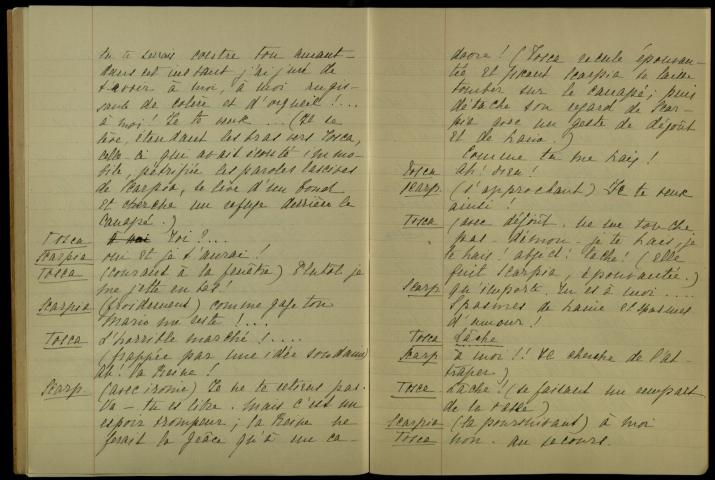 tu te serrais contre ton amant -
dans cet instant j'ai juré de
t'avoir à moi, à moi rugis-
sante de colère et d'orgueil !...
à moi ! Je te veux ... (Il se
lève, étendant les bras vers Tosca,
celle ci qui avait écouté immo-
bile, pétrifiée les paroles lascives
de Scarpia, se lève d'un bond
et cherche un refuge derrière le
canapé.)
Tosca Toi ?....
Scarpia oui et je t'aurai !
Tosca (courant à la fenêtre) Plutôt je
me jette en bas !
Scarpia (froidement) comme gage ton
Mario me reste !....
Tosca L'horrible marché !....
(frappée par une idée soudaine)
Ah ! la Reine !
Scarp (avec ironie) Je ne te retiens pas.
Va - tu es libre. mais c'est un
espoir trompeur ; la Reine ne
ferait la grâce qu'à un ca-
davre ! (Tosca recule épouvan-
tée et fixant Scarpia se laisse
tomber sur le canapé ; puis
détache son regard de Scar-
pia avec un geste de dégoût
et de haine.)
Comme tu me hais !
Tosca Ah ! Dieu !
Scarp (s'approchant) Je te veux
ainsi !
Tosca (avec dégoût. ne me touche
pas - démon - je te hais, je
te hais ! abject ! lâche ! (elle
fuit Scarpia, épouvantée.)
Scarp qu'importe. Tu es à moi ....
Spasmes de haine et spasmes
d'amour !
Tosca Lâche
Scarp à moi !! Il cherche de l'at-
traper)
Tosca Lâche ! (se faisant un rempart
de la table)
Scarpia (la poursuivant) à moi
Tosca non. au secours.